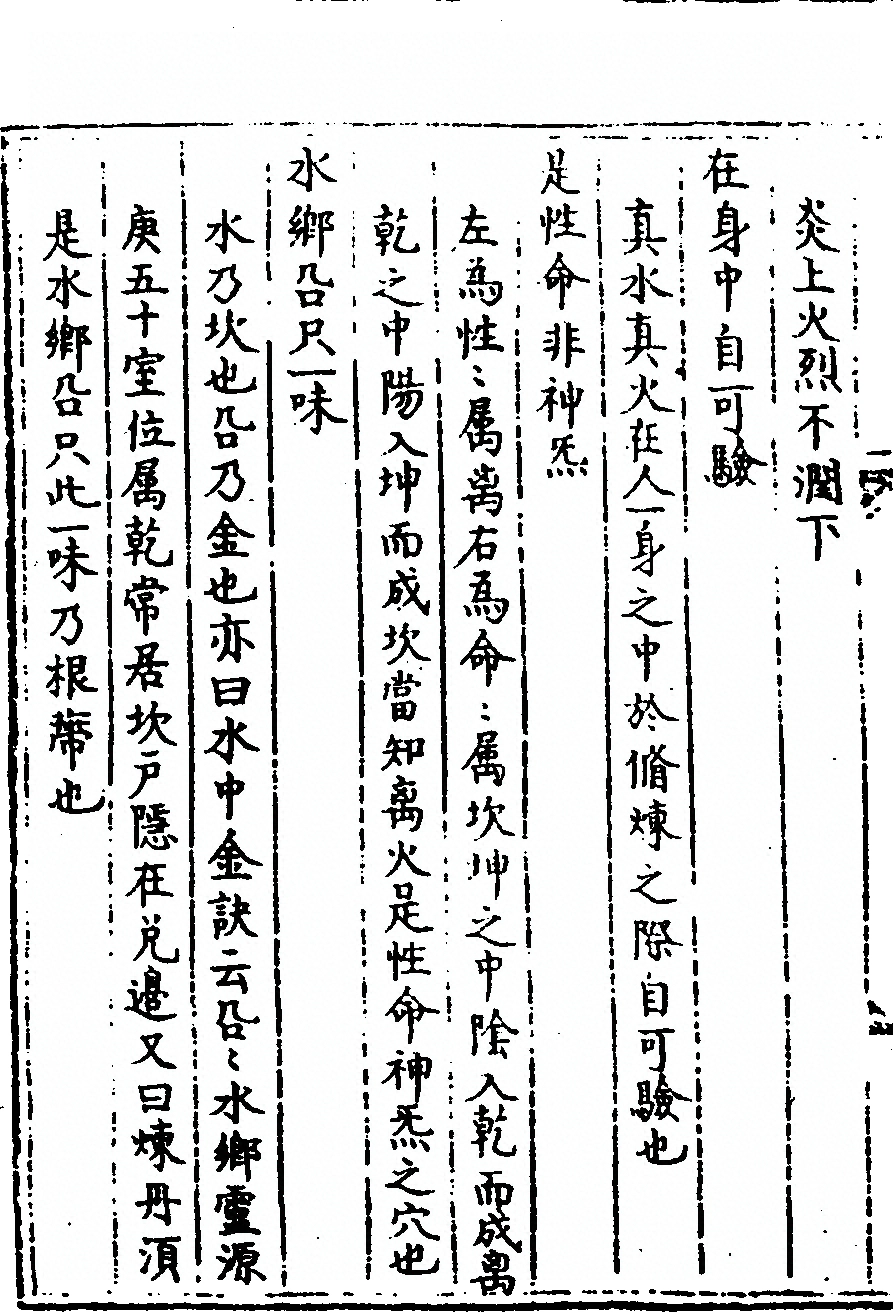 炎上火烈不潤下
在身中自可驗
真水真火在人一身之中於脩煉之際自可驗也
是性命非神炁
左為性〻属离右為命〻属坎坤之中陰入乾而成离
乾之中陽入坤而成坎當知离火是性命神炁之穴也
水鄉鈆只一味
水乃坎也鈆乃金也亦曰水中金訣云鈆〻水鄉靈源
庚五十室位属乾常居坎戶隱在兌邉又曰煉丹湏
是水鄉鈆只此一味乃根蔕也